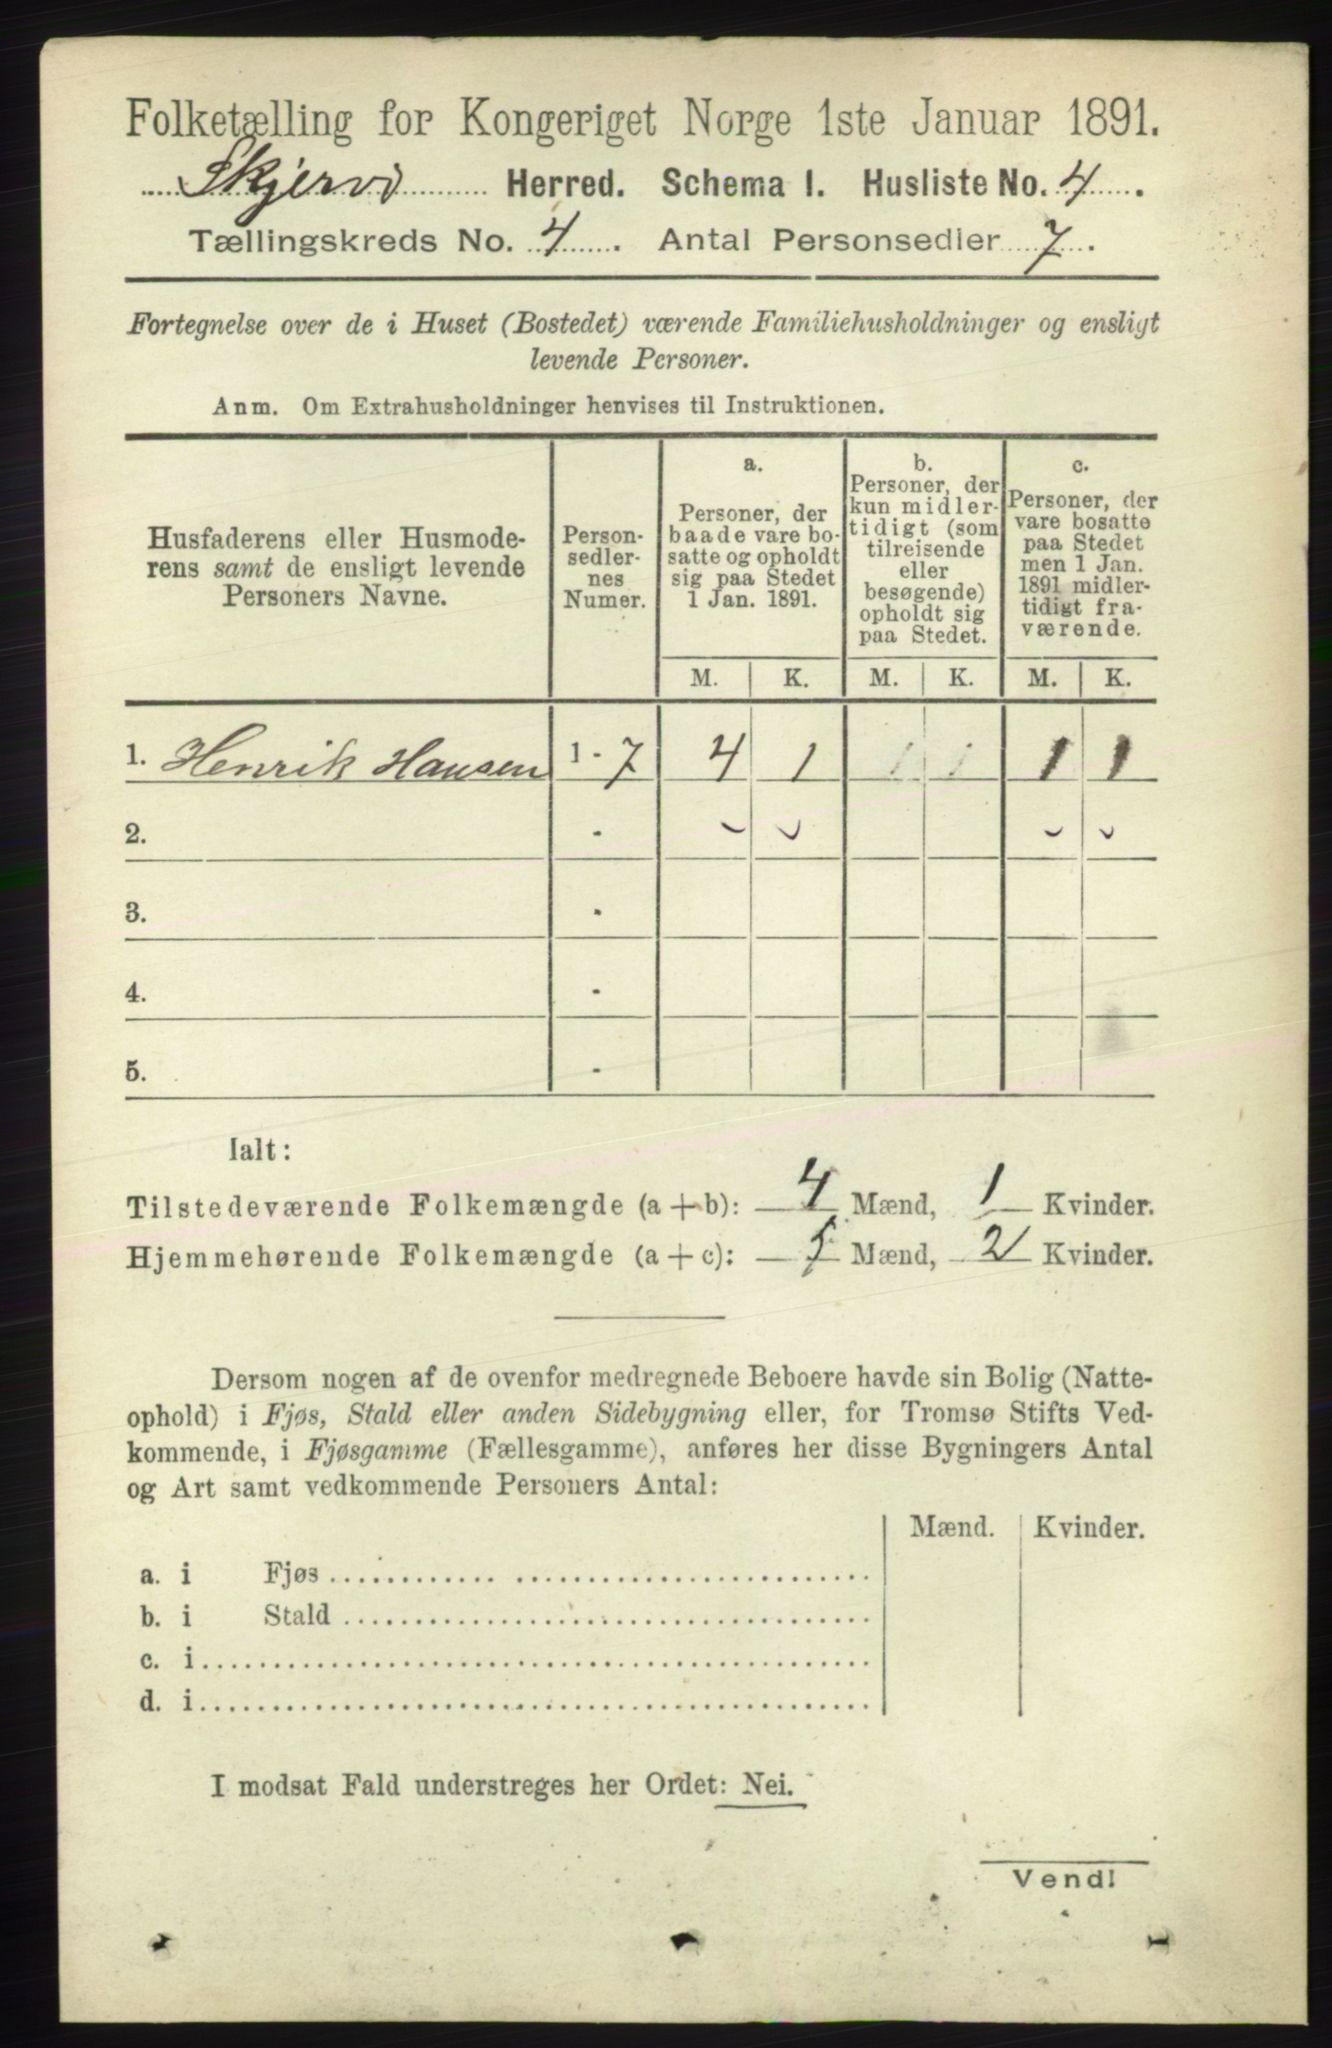 Folketælling for Kongeriget Norge 1ste Januar 1891.
Skjervø Herred. Schema I. Husliste No. 4.
Tællingskreds No. 4. Antal Personsedler 7.
Fortegnelse over de i Huset (Bostedet) værende Familiehusholdninger og ensligt
levende Personer.
Anm. Om Extrahusholdninger henvises til Instruktionen.
Husfaderens eller Husmode-
rens samt de ensligt levende
Personers Navne.
Person-
sedler-
nes
Numer.
a.
Personer, der
baade vare bo-
satte og opholdt
sig paa Stedet
1 Jan. 1891.
b.
Personer, der
kun midler-
tidigt (som
tilreisende
eller
besøgende)
opholdt sig
paa Stedet.
c.
Personer, der
vare bosatte
paa Stedet
men 1 Jan.
1891 midler-
tidigt fra-
værende.
M. K. M. K. M. K.
1. Henrik Hansen 1 - 7 4 1 1 1 1 1
2. -
3. -
4. -
5. -
Ialt:
Tilstedeværende Folkemængde (a + b): 4 Mænd, 1 Kvinder.
Hjemmehørende Folkemængde (a + c): 5 Mænd, 2 Kvinder.
Dersom nogen af de ovenfor medregnede Beboere havde sin Bolig (Natte-
ophold) i Fjøs, Stald eller anden Sidebygning eller, for Tromsø Stifts Ved-
kommende, i Fjøsgamme (Fællesgamme), anføres her disse Bygningers Antal
og Art samt vedkommende Personers Antal:
Mænd. Kvinder.
a. i Fjøs
b. i Stald
c. i
d. i
I modsat Fald understreges her Ordet: Nei.
Vend!